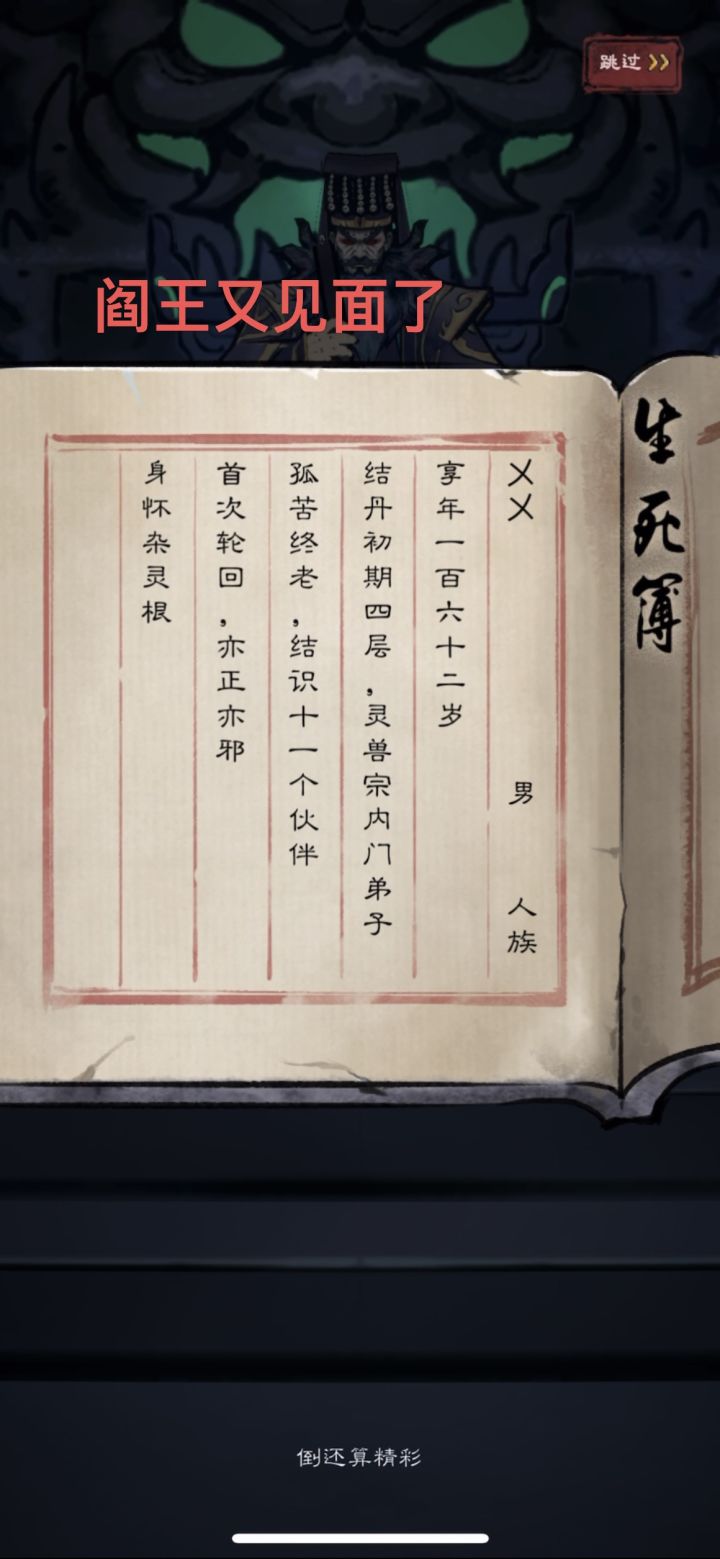 跳过
阎王又见面了
生死簿
乂乂 男 人族
享年一百六十二岁
结丹初期四层，灵兽宗内门弟子
孤苦终老，结识十一个伙伴
首次轮回，亦正亦邪
身怀杂灵根
倒还算精彩